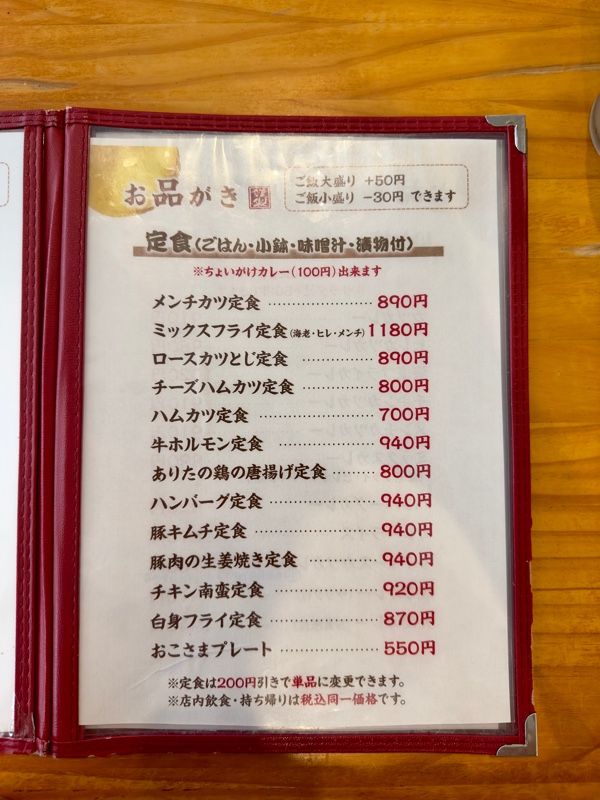 お品がき
ご飯大盛り +50円
ご飯小盛り -30円 できます
定食(ごはん・小鉢・味噌汁・漬物付)
※ちょいがけカレー(100円)出来ます
メンチカツ定食 ………………… 890円
ミックスフライ定食(海老・ヒレ・メンチ) 1180円
ロースカツとじ定食 ………… 890円
チーズハムカツ定食 ………… 800円
ハムカツ定食 ………………… 700円
牛ホルモン定食 ……………… 940円
ありたの鶏の唐揚げ定食 ……… 800円
ハンバーグ定食 ……………… 940円
豚キムチ定食 ………………… 940円
豚肉の生姜焼き定食 ………… 940円
チキン南蛮定食 ……………… 920円
白身フライ定食 ……………… 870円
おこさまプレート …………… 550円
※定食は200円引きで単品に変更できます。
※店内飲食・持ち帰りは税込同一価格です。